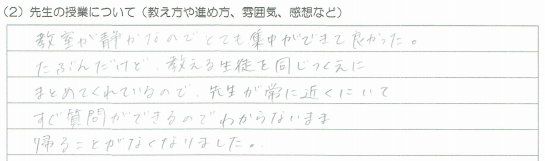 (2) 先生の授業について（教え方や進め方、雰囲気、感想など）
教室が静かなのでとても集中ができて良かった。
たぶんだけど、教える生徒を同じつくえに
まとめてくれているので、先生が常に近くにいて
すぐ質問ができるのでわからないまま
帰ることがなくなりました。